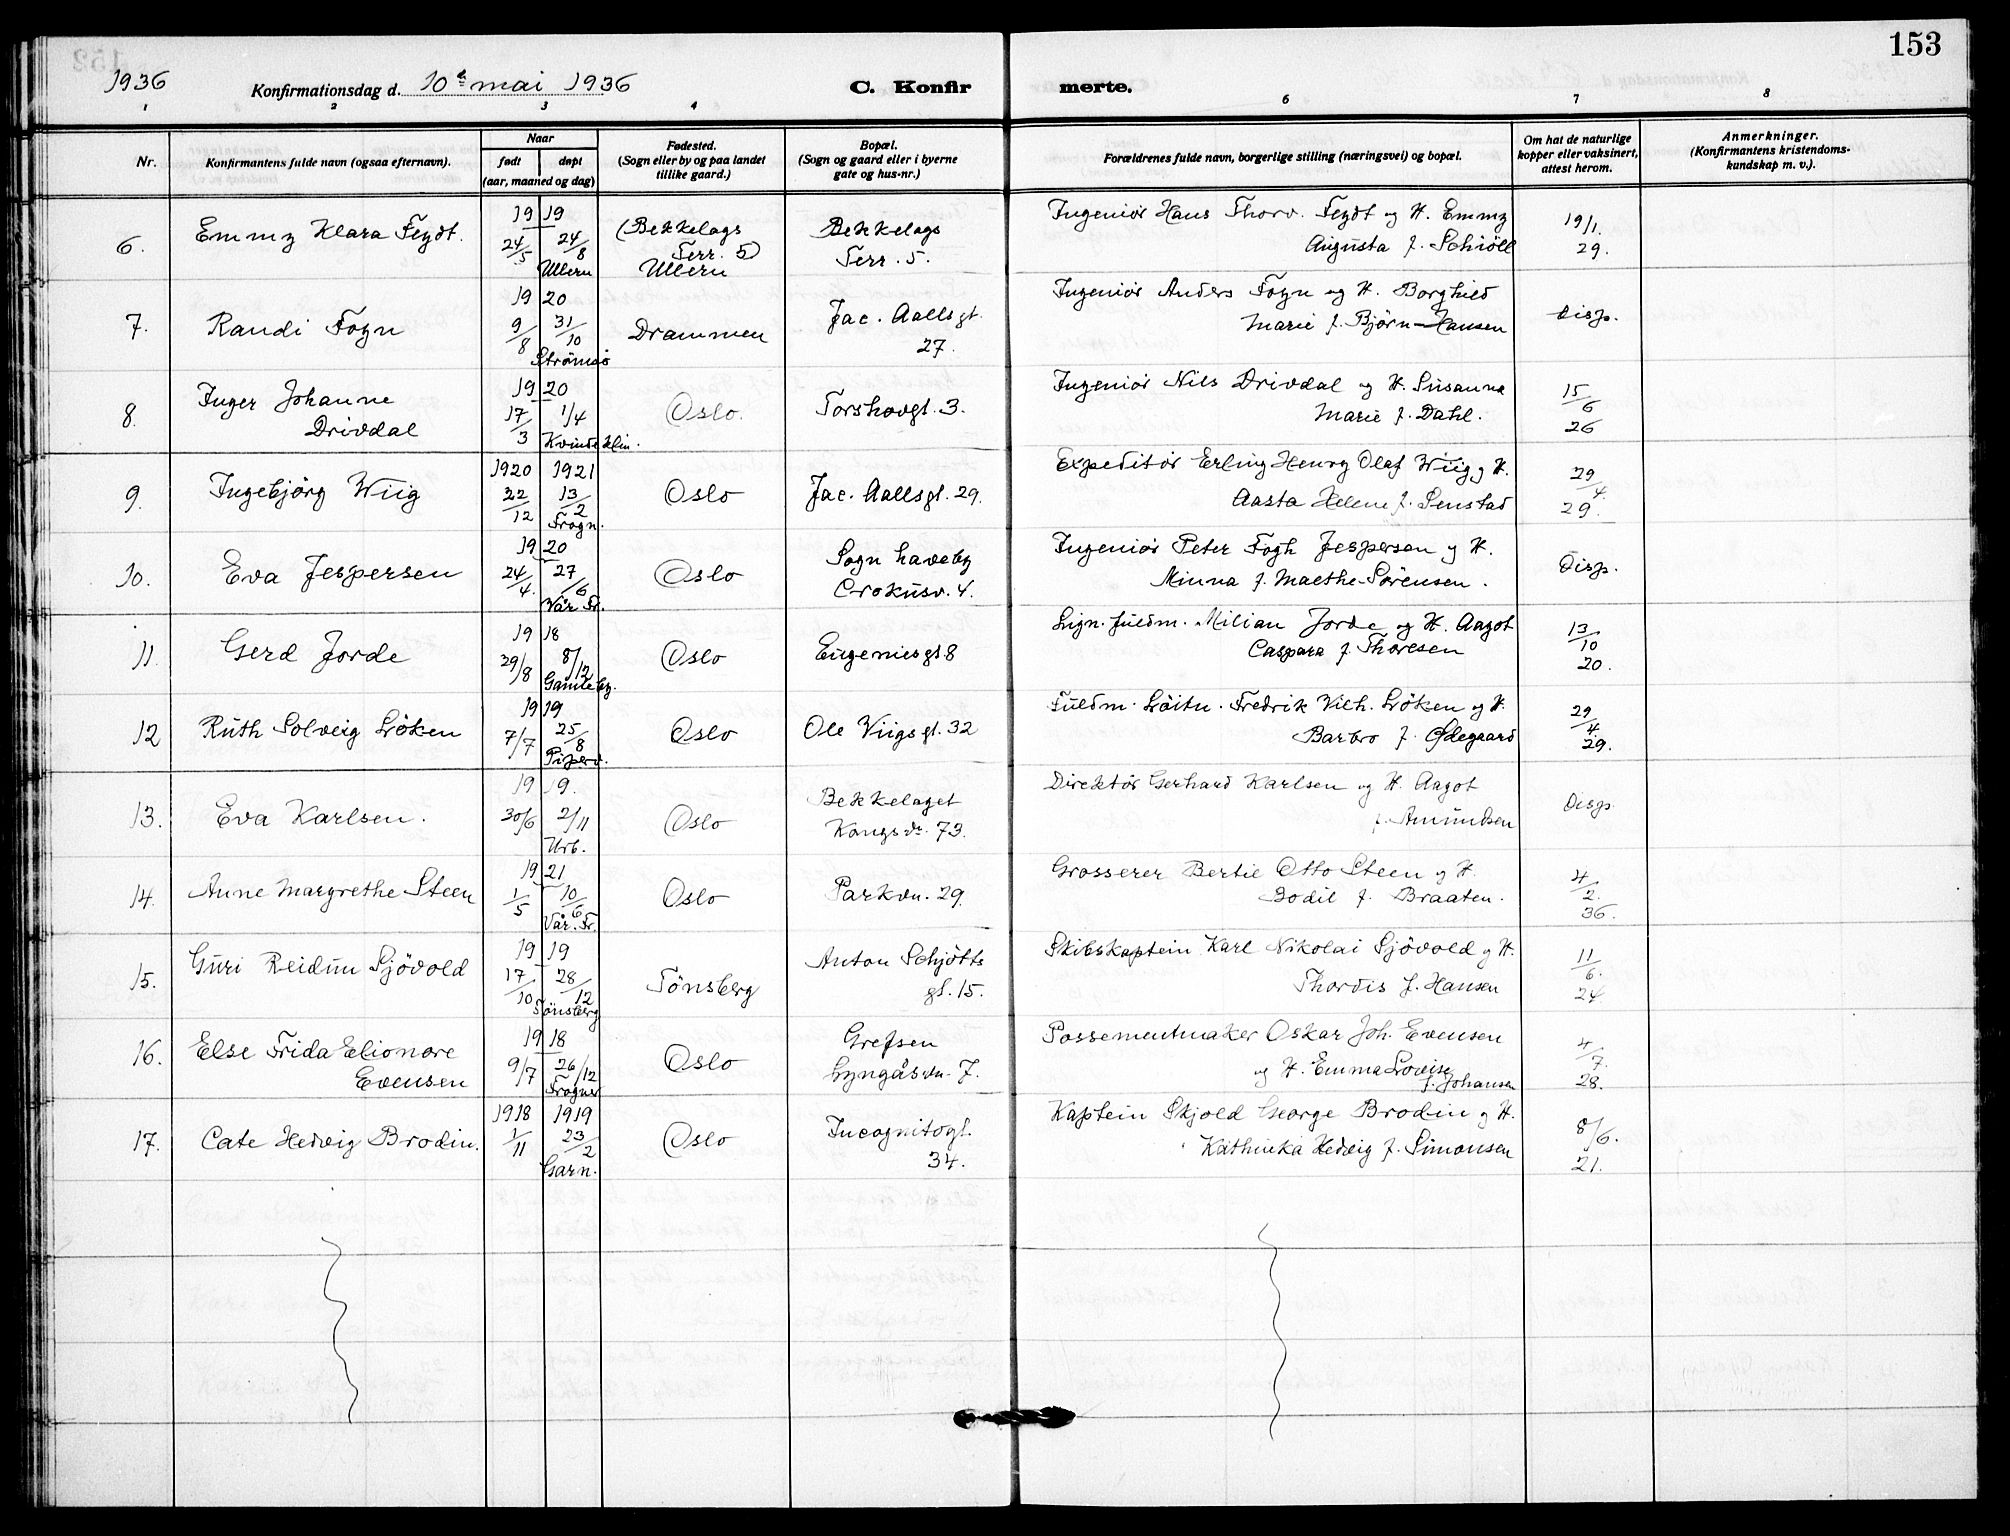 153
1936
Konfirmationsdag d. 10de mai 1936
C. Konfirmerte.
1 2 3 4 5 6 7 8
Nr.
Konfirmantens fulde navn (ogsaa efternavn).
Naar
født
døpt
(aar, maaned og dag)
Fødested.
(Sogn eller by og paa landet
tillike gaard.)
Bopæl.
(Sogn og gaard eller i byerne
gate og hus-nr.)
Forældrenes fulde navn, borgerlige stilling (næringsvei) og bopæl.
Om hat de naturlige
kopper eller vaksinert,
attest herom.
Anmerkninger.
(Konfirmantens kristendoms-
kundskap m. v.).
6. Emmy Klara Feydt. 19 19
24/5 24/8 Ullern
(Bekkelags
Terr. 5)
Ullern
Bekkelags
Terr. 5.
Ingeniør Hans Thorv. Feydt og H. Emmy
Augusta f. Schiöll
19/1.
29.
7. Randi Fogn 19 20
9/8 31/10 Strömsö
Drammen
Jac. Aallsgt.
27.
Ingeniør Anders Fogn og H. Borghild
Marie f. Björn-Hansen
Disp.
8. Inger Johanne
Drivdal
19 20
17/3 1/4 Kvindeklin.
Oslo.
Torshovgt. 3.
Ingeniør Nils Drivdal og H. Susanna
Marie f. Dahl.
15/6
26
9. Ingebjörg Wiig 1920 1921
22/12 13/2 Frogn.
Oslo
Jac. Aallsgt. 29.
Expeditör Erling Henry Olaf Wiig og H.
Aasta Helene f. Senstad
29/4.
29.
10. Eva Jespersen 19 20
24/4. 27/6 Vår Fr.
Oslo
Sogn haveby
Crokusv. 4.
Ingeniør Peter Fogh Jespersen og H.
Minna f. Maethe-Sörensen.
Disp.
11. Gerd Jorde 19 18
29/8 8/12 Gamleby.
Oslo
Eugeniesgt 8
Lign. fuldm. Milian Jorde og H. Aagot
Caspara f. Thoresen
13/10
20.
12 Ruth Solveig Löken 19 19
7/7 25/8 Piperv.
Oslo
Ole Viigsgt. 32
Fuldm. Löitn. Fredrik Vilh. Löken og H.
Barbro f. Ødegaard
29/4.
29.
13. Eva Karlsen. 19 19.
30/6 2/11 Urb.
Oslo
Bekkelaget
Kongsvn. 73.
Direktör Gerhard Karlsen og H. Aagot
f. Amundsen
Disp.
14. Anne Margrethe Steen 19 21
1/5 10/6 Vår Fr.
Oslo
Parkvn. 29.
Grosserer Bertil Otto Steen og H.
Bodil f. Braaten.
4/2.
36.
15. Guri Reidun Sjövold 19 19
17/10 28/12 Tönsberg
Tönsberg
Anton Schjötts
gt. 15.
Skibskaptein Karl Nikolai Sjövold og H.
Thordis f. Hansen
11/6.
24.
16. Else Frida Elionore
Evensen
19 18
9/7 26/12 Frogner
Oslo
Grefsen
Lyngåsvn. 7.
Possementmaker Oskar Joh. Evensen
og H. Emma Lovise
f. Johansen
4/7.
28.
17. Cate Hedvig Brodin. 1918 1919
1/11 23/2 Garn.
Oslo
Incognitogt.
34.
Kaptein Skjold George Brodin og H.
Kathinka Hedvig f. Simonsen
8/6.
21.